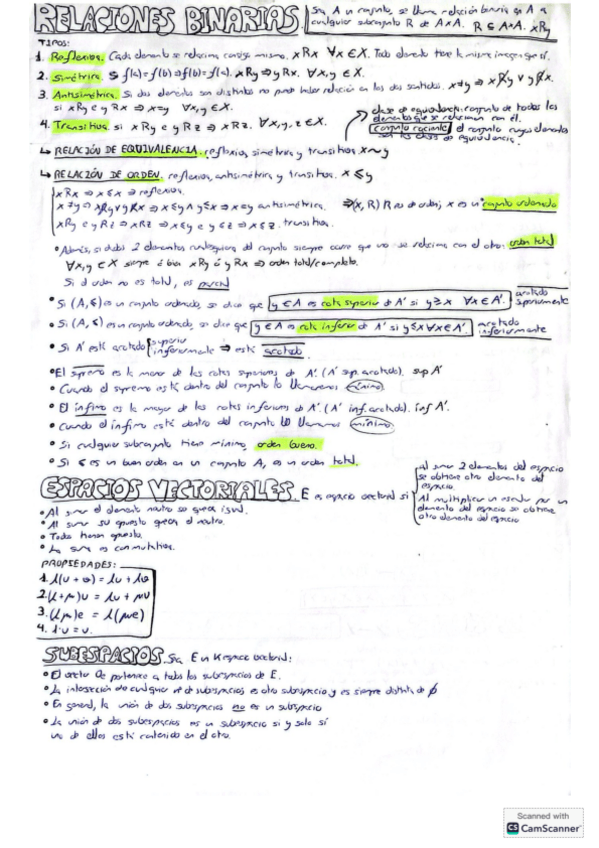 RELACIONES BINARIAS
Sea A un conjunto, se llama relación binaria en A a
cualquier subconjunto R de A×A. R ⊆ A×A. xRy
TIPOS:
1. Reflexiva. Cada elemento se relaciona consigo mismo. xRx ∀x∈X. Todo elemento tiene la misma imagen que sí.
2. Simétrica. Si f(a)=f(b)⇒f(b)=f(a). xRy⇒yRx. ∀x,y∈X.
3. Antisimétrica. Si dos elementos son distintos no puede haber relación en los dos sentidos.
si xRy e yRx ⇒ x=y ∀x,y∈X.
4. Transitiva. si xRy e yRz ⇒ xRz. ∀x,y,z∈X.
clase de equivalencia: conjunto de todos los
elementos que se relacionan con él.
Conjunto cociente: el conjunto cuyos elementos
son las clases de equivalencia.
↳ RELACIÓN DE EQUIVALENCIA. reflexiva, simétrica y transitiva. x~y
↳ RELACIÓN DE ORDEN. reflexiva, antisimétrica y transitiva. x≤y
xRx ⇒ x≤x ⇒ reflexiva.
⇒ x≤y ∧ y≤x ⇒ x=y antisimétrica.
⇒(X,R) R es de orden; X es un conjunto ordenado
xRy e yRz ⇒ xRz ⇒ x≤y e y≤z ⇒ x≤z. transitiva.
• Además, si dados 2 elementos cualesquiera del conjunto siempre ocurre que uno se relaciona con el otro: orden total
∀x,y∈X siempre ó bien xRy ó yRx ⇒ orden total/completo.
Si el orden no es total, es parcial
• Si (A,≤) es un conjunto ordenado, se dice que y∈A es cota superior de A' si y≥x ∀x∈A'. acotado superiormente
• Si (A,≤) es un conjunto ordenado, se dice que y∈A es cota inferior de A' si y≤x ∀x∈A'. acotado inferiormente
• Si A' está acotado superior inferiormente ⇒ está acotado.
• El supremo es la menor de las cotas superiores de A'. (A' sup. acotado). sup A'
• Cuando el supremo está dentro del conjunto lo llamamos
• El ínfimo es la mayor de las cotas inferiores de A'. (A' inf. acotado). inf A'.
• Cuando el ínfimo está dentro del conjunto lo llamamos mínimo.
• Si cualquier subconjunto tiene mínimo, orden bueno.
• Si ≤ es un buen orden en un conjunto A, es un orden total.
ESPACIOS VECTORIALES. E es espacio vectorial si
Al sumar 2 elementos del espacio
se obtiene otro elemento del
espacio.
Al multiplicar un escalar por un
elemento del espacio se obtiene
otro elemento del espacio
• Al sumar el elemento neutro se queda igual.
• Al sumar su opuesto queda el neutro.
• Todos tienen opuesto.
• La suma es conmutativa.
PROPIEDADES:
1. λ(u+v) = λu + λv
2. (λ+μ)u = λu + μu
3. (λμ)e = λ(μe)
4. 1·u = u.
SUBESPACIOS. Sea E un K-espacio vectorial:
• El vector 0e pertenece a todos los subespacios de E.
• La intersección de cualquier nº de subespacios es otro subespacio y es siempre distinta de ∅
• En general, la unión de dos subespacios no es un subespacio
• La unión de dos subespacios es un subespacio si y solo si
uno de ellos está contenido en el otro.
Scanned with
CS CamScanner